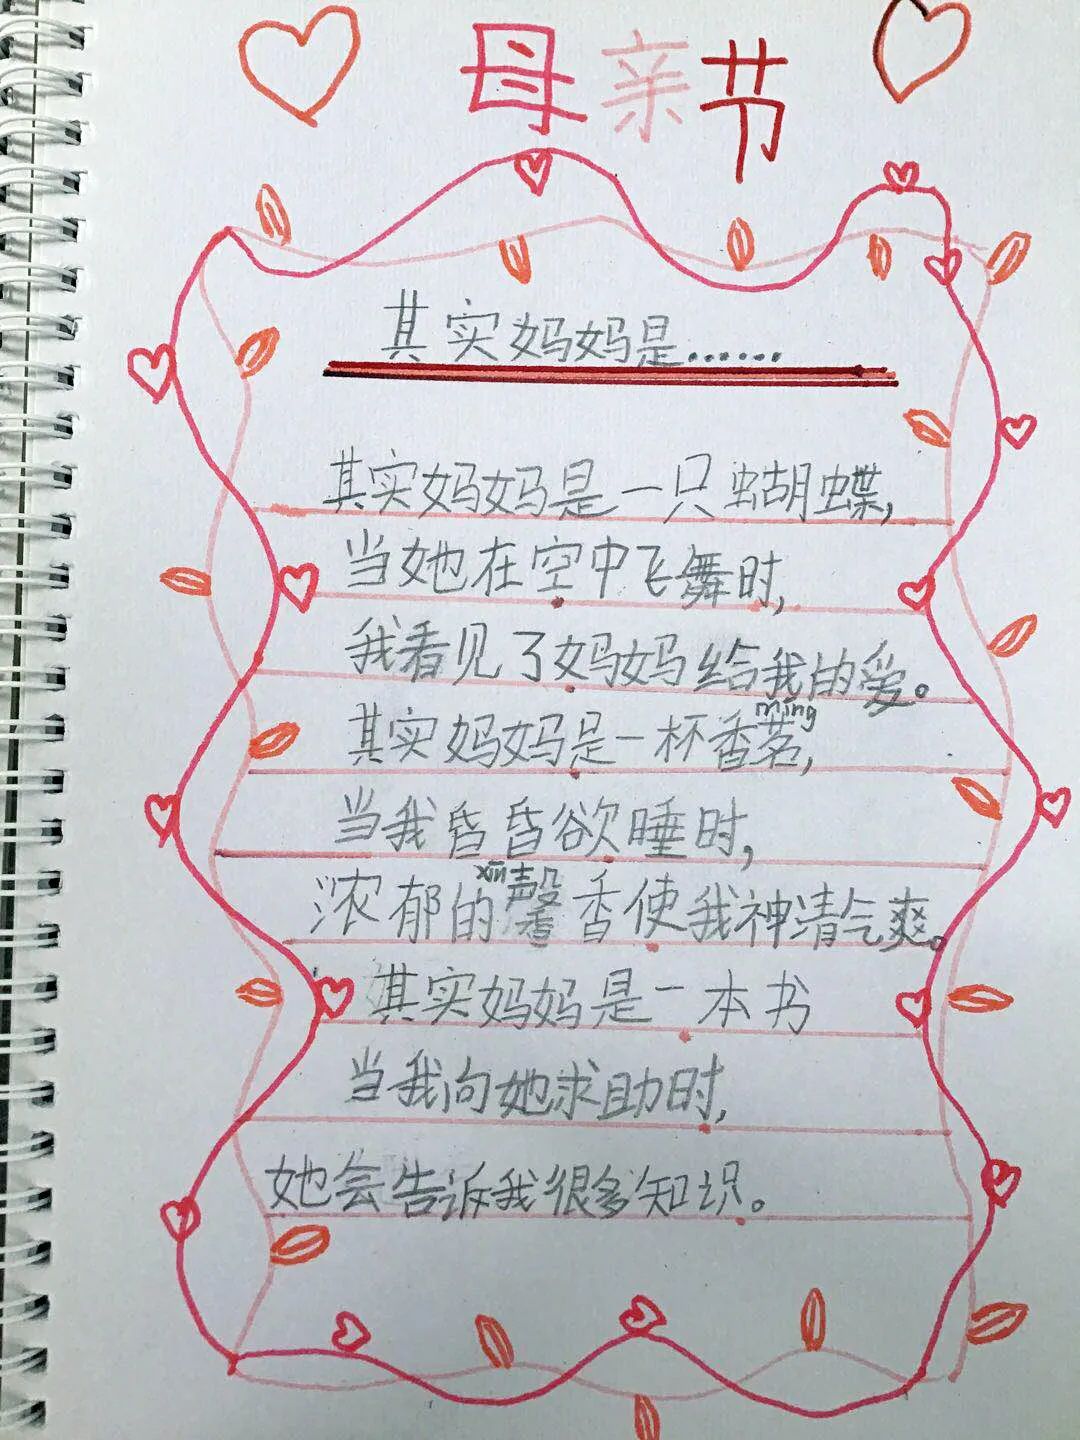 母亲节
其实妈妈是……
其实妈妈是一只蝴蝶,
当她在空中飞舞时,
我看见了妈妈给我的爱。
míng
其实妈妈是一杯香茗,
当我昏昏欲睡时,
xīn
浓郁的馨香使我神清气爽。
其实妈妈是一本书
当我向她求助时,
她会告诉我很多知识。